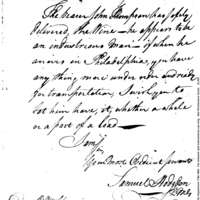 The bearer John Thompson has safely
delivered, the Wine — he appears to be
an industrious Man — if when he
arrives in Philadelphia, you have
any thing more under order and ready
for transportation I wish you to
let him have it, whether a whole
or a part of a load —
I am Sir
Your Most Obedient Servant
Samuel Hodgson